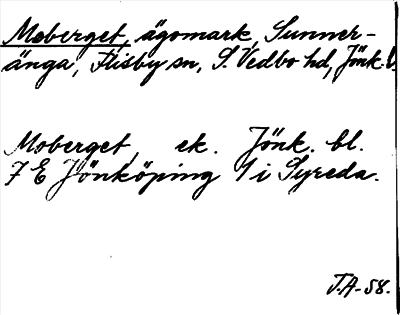 Moberget, ägomark, Sunner-
änga, Flisby sn, S. Vedbo hd, Jönk. l.
Moberget, ek. Jönk. bl.
7 E Jönköping 1 i Syreda.
J.A-58.